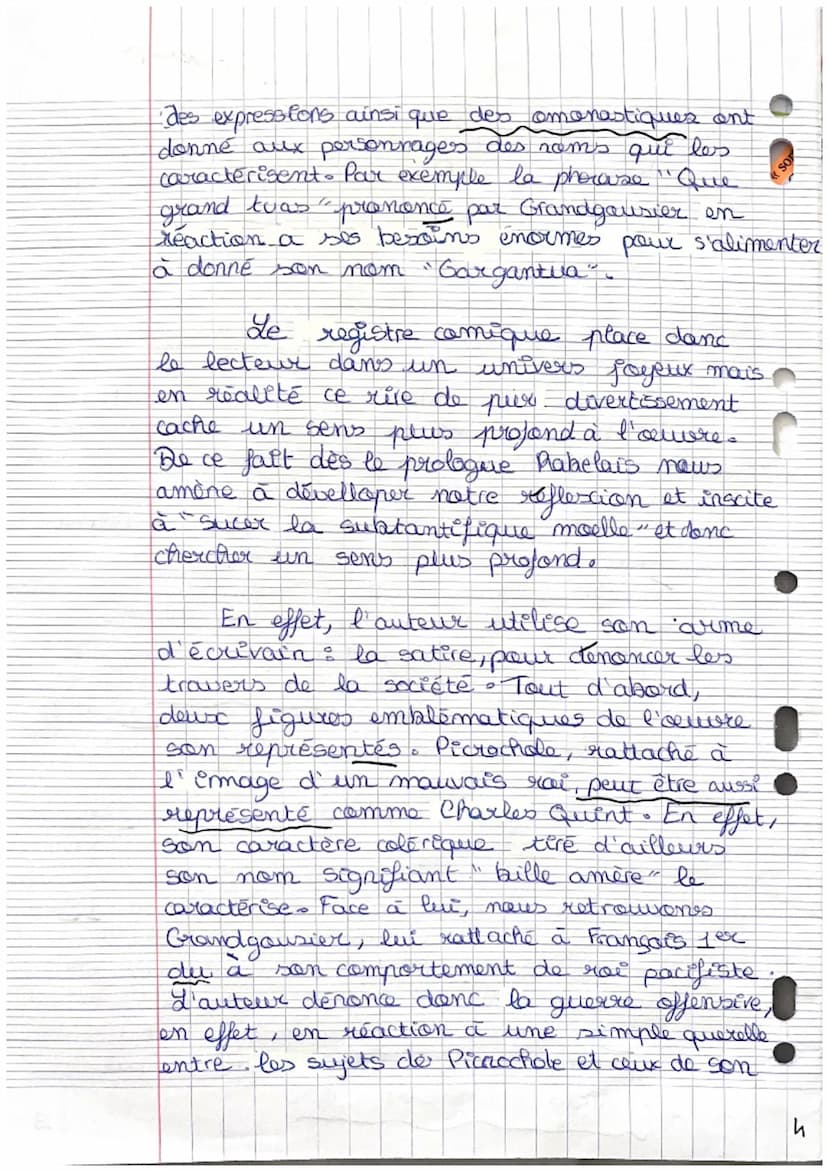 des expressions ainsi que des omonastiques ont
donné aux personnages des noms qui les
caractérisent. Par exemple la phrase "Que
grand tuas" prononcé par Grandgousier en
réaction a ses besoins énormes pour s'alimenter
à donné son nom "Gargantua".
Le registre comique place donc
le lecteur dans un univers joyeux mais
en réalité ce rire de pur divertissement
cache un sens plus profond à l'œuvre.
De ce fait dès le prologue Rabelais nous
amène à développer notre réflexion et inscite
à "sucer la substantifique moelle" et donc
chercher un sens plus profond.
En effet, l'auteur utilise son arme
d'écrivain : la satire, pour dénoncer les
travers de la société. Tout d'abord,
deux figures emblématiques de l'oeuvre
son représentés. Picrochole, rattaché à
l'immage d'un mauvais roi, peut être aussi
représenté comme Charles Quint. En effet,
son caractère colérique tiré d'ailleurs
son nom signifiant "bille amère" le
caractérise. Face à lui, nous retrouvons
Grandgousier, lui rattaché à François 1er
du à son comportement de roi pacifiste.
L'auteur dénonce donc la guerre offensive,
en effet, en réaction à une simple querelle
entre les sujets de Picrochole et ceux de son
4